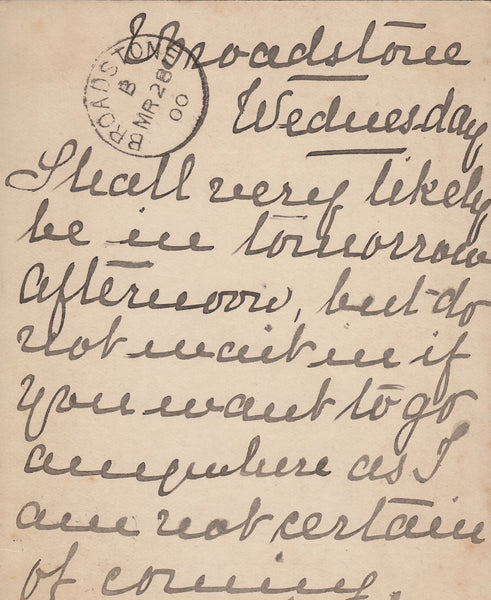 Broadstone
Wednesday
BROADSTONE
B
MR 28
00
I shall very likely
be in tomorrow
afternoon, but do
not wait in if
you want to go
anywhere as I
am not certain
of coming.